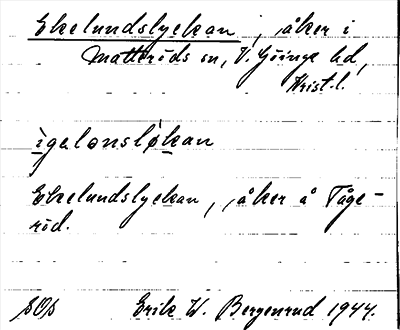 Ekelundslyckan, åker i
Matteröds sn, V. Göinge hd,
Krist. l.
igelonsløkan
Ekelundslyckan, åker å Tåge-
röd.
SOS Erik W. Bergenrud 1944.